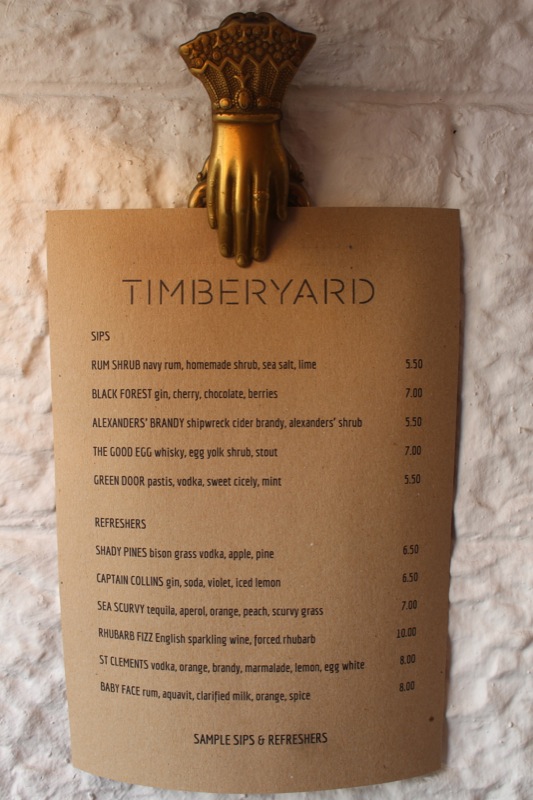 TIMBERYARD
SIPS
RUM SHRUB navy rum, homemade shrub, sea salt, lime 5.50
BLACK FOREST gin, cherry, chocolate, berries 7.00
ALEXANDERS' BRANDY shipwreck cider brandy, alexanders' shrub 5.50
THE GOOD EGG whisky, egg yolk shrub, stout 7.00
GREEN DOOR pastis, vodka, sweet cicely, mint 5.50
REFRESHERS
SHADY PINES bison grass vodka, apple, pine 6.50
CAPTAIN COLLINS gin, soda, violet, iced lemon 6.50
SEA SCURVY tequila, aperol, orange, peach, scurvy grass 7.00
RHUBARB FIZZ English sparkling wine, forced rhubarb 10.00
ST CLEMENTS vodka, orange, brandy, marmalade, lemon, egg white 8.00
BABY FACE rum, aquavit, clarified milk, orange, spice 8.00
SAMPLE SIPS & REFRESHERS